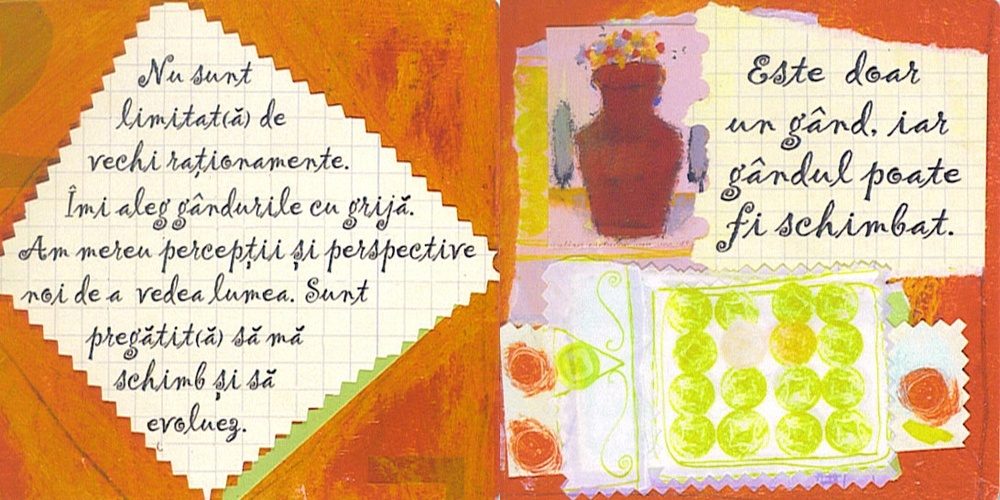 Nu sunt
limitat(ă) de
vechi raționamente.
Îmi aleg gândurile cu grijă.
Am mereu percepții și perspective
noi de a vedea lumea. Sunt
pregătit(ă) să mă
schimb și să
evoluez.
Este doar
un gând, iar
gândul poate
fi schimbat.